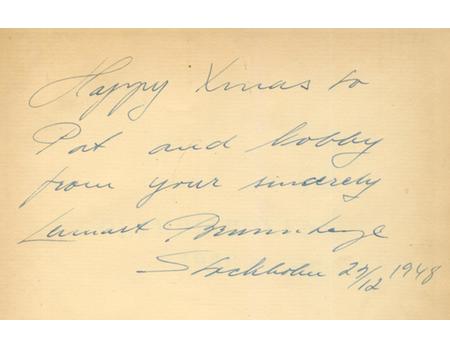 Happy Xmas to
Pat and Bobby
from your sincerely
Lennart
Stockholm 29/12 1948